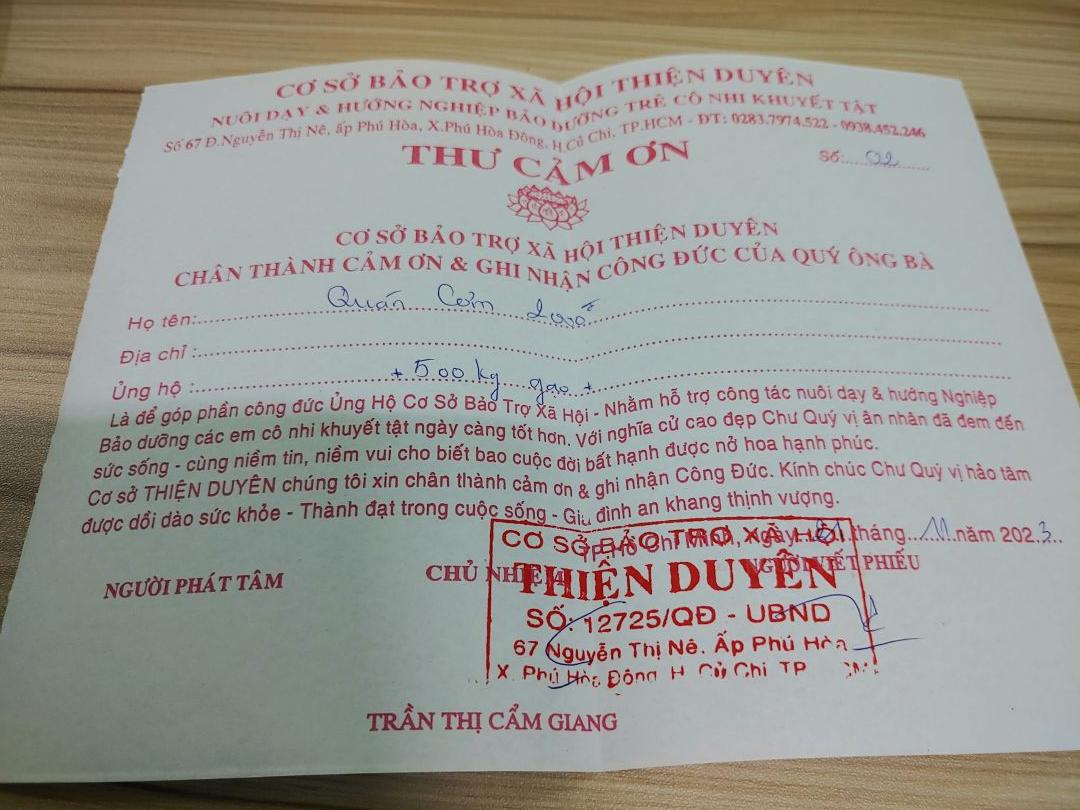 CƠ SỞ BẢO TRỢ XÃ HỘI THIỆN DUYÊN
NUÔI DẠY & HƯỚNG NGHIỆP BẢO DƯỠNG TRẺ CÔ NHI KHUYẾT TẬT
Số 67 Đ.Nguyễn Thị Nê, ấp Phú Hòa, X.Phú Hòa Đông, H.Củ Chi, TP.HCM - ĐT: 0283.7974.522 - 0938.452.246
THƯ CẢM ƠN
Số:.....02
CƠ SỞ BẢO TRỢ XÃ HỘI THIỆN DUYÊN
CHÂN THÀNH CẢM ƠN & GHI NHẬN CÔNG ĐỨC CỦA QUÝ ÔNG BÀ
Họ tên: Quán Cơm
Địa chỉ :
Ủng hộ : + 500 kg gạo +
Là để góp phần công đức Ủng Hộ Cơ Sở Bảo Trợ Xã Hội - Nhằm hỗ trợ công tác nuôi dạy & hướng Nghiệp
Bảo dưỡng các em cô nhi khuyết tật ngày càng tốt hơn. Với nghĩa cử cao đẹp Chư Quý vị ân nhân đã đem đến
sức sống - cùng niềm tin, niềm vui cho biết bao cuộc đời bất hạnh được nở hoa hạnh phúc.
Cơ sở THIỆN DUYÊN chúng tôi xin chân thành cảm ơn & ghi nhận Công Đức. Kính chúc Chư Quý vị hảo tâm
được dồi dào sức khỏe - Thành đạt trong cuộc sống - Gia đình an khang thịnh vượng.
TP.Hồ Chí Minh, ngày tháng 11 năm 2023
NGƯỜI PHÁT TÂM
CHỦ NHIỆM
NGƯỜI VIẾT PHIẾU
CƠ SỞ BẢO TRỢ XÃ HỘI
THIỆN DUYÊN
SỐ: 12725/QĐ - UBND
67 Nguyễn Thị Nê. Ấp Phú Hòa
X. Phú Hòa Đông H. Củ Chi TP
TRẦN THỊ CẨM GIANG